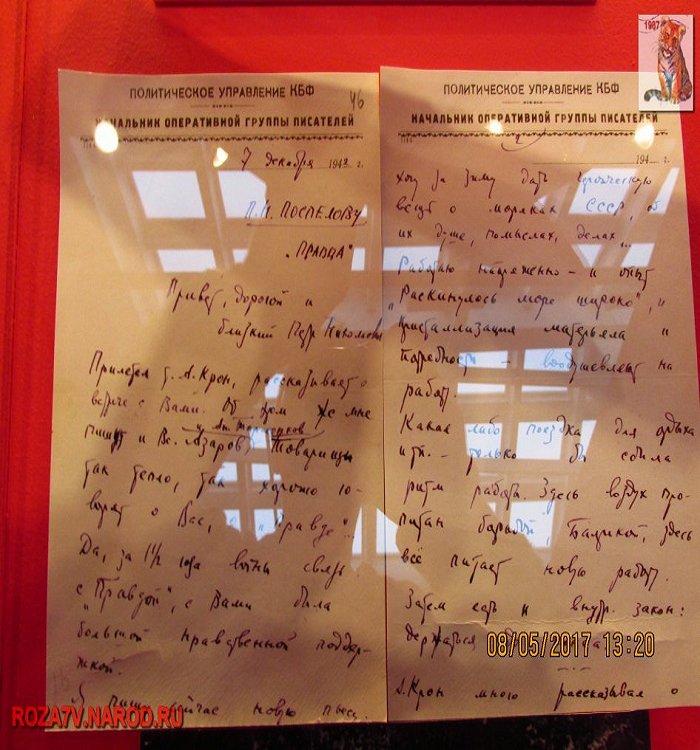 1967
ПОЛИТИЧЕСКОЕ УПРАВЛЕНИЕ КБФ
46
НАЧАЛЬНИК ОПЕРАТИВНОЙ ГРУППЫ ПИСАТЕЛЕЙ
7 декабря 1942 г.
П.Н. ПОСПЕЛОВУ
„ПРАВДА"
Привет, дорогой и
близкий Петр Николаевич
Прилетел т. А. Крон, рассказывает о
встрече с Вами. Об этом же мне
пишут и Вс. Азаров, Товарищи
так тепло, так хорошо го-
ворят о Вас, о „Правде"...
Да, за 1½ года войны связь
с „Правдой", с Вами была
большой нравственной поддер-
жкой.
Я пишу сейчас новую пьесу.
ПОЛИТИЧЕСКОЕ УПРАВЛЕНИЕ КБФ
НАЧАЛЬНИК ОПЕРАТИВНОЙ ГРУППЫ ПИСАТЕЛЕЙ
194 г.
Хочу за зиму дать героическую
вещь о моряках СССР, об
их душе, помыслах, делах...
Работаю напряженно – и опыт
„Раскинулось море широко", и
кристаллизация материала и
потребность – воодушевляет на
работу.
Какая либо поездка для отдыха
и т.п. – только бы сбила
ритм работы. Здесь воздух про-
питан борьбой, Балтикой, здесь
всё питает новую работу.
Затем есть и внутр. закон:
держаться
А. Крон много рассказывал о
08/05/2017 13:20
ROZATV.NAROD.RU